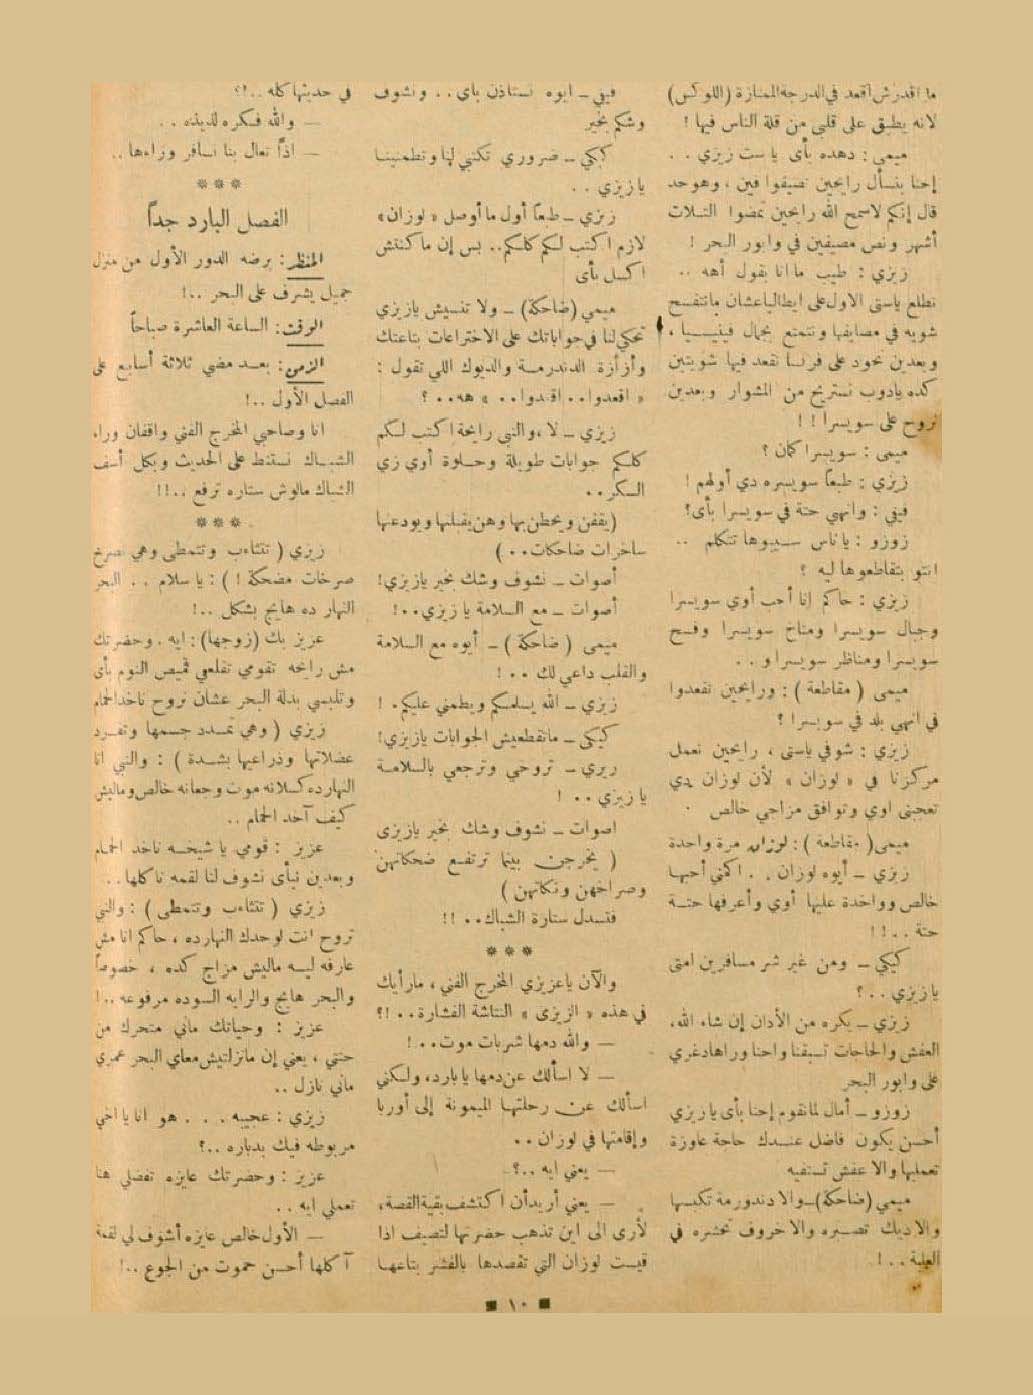 ما اقدرش أقعد في الدرجة الممتازة (اللوكس)
لانه يطبق على قلبي من قلة الناس فيها !
ميمى : دهده بأى ياست زيزي . .
إحنا بنسأل رايحين تصيفوا فين ، وهو حد
قال إنكم لاسمح الله رايحين تمضوا التلات
أشهر ونص مصيفين في وابور البحر !
زيزي : طيب ما انا بقول أهه ..
نطلع ياستى الاول على ايطاليا عشان ما نتفسح
شويه في مصايفها ونتمتع بجمال فينيسيا ،
وبعدين نحود على فرنسا نقعد فيها شويتين
كده يادوب نستريح من المشوار وبعدين
نروح على سويسرا ! !
ميمى : سويسرا كمان ؟
زيزي : طبعاً سويسره دي أولهم !
فيفي : وانهي حتة في سويسرا بأى؟
زوزو : يا ناس سيبوها تتكلم ..
انتو بتقاطعوها ليه ؟
زيزي : حاكم إنا أحب أوي سويسرا
وجبال سويسرا ومناخ سويسرا وفسح
سويسرا ومناظر سويسرا و . .
ميمى ( مقاطعة ) : ورايحين تقعدوا
في انهي بلد في سويسرا ؟
زيزي : شوفي ياستى ، رايحين نعمل
مركزنا في « لوزان » لأن لوزان دي
تعجبنى اوي وتوافق مزاجي خالص .
ميمى ( مقاطعة ) : لوزان مرة واحدة
زيزي ــ أيوه لوزان . . اكمني أحبها
خالص وواخدة عليها أوي وأعرفها حتة
حتة . . ! !
كيكي ــ ومن غير شر مسافرين امتى
يازيزي . . ؟
زيزي ــ بكره من الأدان إن شاء الله ،
العفش والحاجات تسبقنا واحنا وراها دغري
على وابور البحر
زوزو ــ أمال لما نقوم إحنا بأى يازيزي
أحسن يكون فاضل عندك حاجة عاوزة
تعمليها والا عفش تستفيه
ميمي (ضاحكة) ــ والا دندورمة تكبسيها
والا ديك تصبره والا خروف تحشره في
العلبة . . !
فيفي ــ أيوه نستاذن بأى . . ونشوف
وشكم بخير
كيكي ــ ضروري تكتبي لنا وتطمنينا
يازيزي . .
زيزي ــ طبعاً أول ما أوصل « لوزان »
لازم اكتب لكم كلكم .. بس إن ماكنتش
اكسل بأى
ميمي (ضاحكة) ــ ولا تنسيش يازيزي
تحكي لنا في جواباتك على الاختراعات بتاعتك
وأزازة الدندرمة والديوك اللي تقول :
« اقعدوا . . اقعدوا . . » هه . . ؟
زيزي ــ لا ، والنبي رايحة اكتب لكم
كلكم جوابات طويلة وحلوة أوي زي
السكر . .
(يقفن ويحطن بها وهن يقبلنها ويودعنها
ساخرات ضاحكات . . )
أصوات ــ نشوف وشك بخير يازيزي !
أصوات ــ مع السلامة يا زيزي . . !
ميمى ( ضاحكة ) ــ أيوه مع السلامة
والقلب داعي لك . . !
زيزي ــ الله يسلمكم ويطمني عليكم . !
كيكى ــ ماتقطعيش الجوابات يازيزي !
زيزي ــ تروحي وترجعي بالسلامة
يا زيزي . . !
اصوات ــ نشوف وشك بخير يازيزى
( يخرجن بينما ترتفع ضحكاتهن
وصراخهن ونكاتهن )
فتسدل ستارة الشباك . . ! !
* * *
والآن ياعزيزي المخرج الفني ، مارأيك
في هذه « الزيزى » النتاشة الفشارة . . !؟
ــ والله دمها شربات موت . . !
ــ لا اسألك عن دمها يابارد ، ولكني
اسألك عن رحلتها الميمونة إلى أوربا
وإقامتها في لوزان . .
ــ يعني ايه ..؟
ــ يعني أريد أن اكتشف بقية القصة ،
لأرى الى اين تذهب حضرتها لتصيف اذا
قيست لوزان التي تقصدها بالفشر بتاعها
في حديثها كله ..!؟
ــ والله فكره لذيذه . .
ــ اذاً تعال بنا نسافر وراءها ..
* * *
الفصل البارد جداً
المنظر : برضه الدور الأول من منزل
جميل يشرف على البحر ..!
الوقت : الساعة العاشرة صباحاً
الزمن : بعد مضي ثلاثة أسابيع على
الفصل الأول ..!
انا وصاحبي المخرج الفني واقفان وراء
الشباك نستنط على الحديث وبكل أسف
الشباك مالوش ستاره ترفع ..!!
* * *
زيزي ( تتثاءب وتتمطى وهي تصرخ
صرخات مضحكة ! ) : يا سلام . . البحر
النهار ده هايج بشكل ..!
عزيز بك (زوجها) : ايه . وحضرتك
مش رايحه تقومي تقلعي قميص النوم بأى
وتلبسي بدلة البحر عشان نروح ناخد الحمام
زيزي ( وهي تمدد جسمها وتفرد
عضلاتها وذراعيها بشدة ) : والنبي انا
النهارده كسلانه موت وجعانه خالص وماليش
كيف آخد الحمام ..
عزيز : قومي يا شيخه ناخد الحمام
وبعدين نبأى نشوف لنا لقمه ناكلها ..
زيزي ( تتثاءب وتتمطى ) : والنبي
تروح انت لوحدك النهارده ، حاكم انا مش
عارفه ليه ماليش مزاج كده ، خصوصاً
والبحر هايج والرايه السوده مرفوعه ..!
عزيز : وحياتك ماني متحرك من
حتتي ، يعني إن مانزلتيش معاي البحر عمري
ماني نازل ..
زيزي : عجيبه . . . هو انا يا اخي
مربوطه فيك بدباره ..؟
عزيز : وحضرتك عايزه تفضلي هنا
تعملي ايه ..
ــ الأول خالص عايزه أشوف لي لقمة
آكلها أحسن حموت من الجوع ..!
١٠